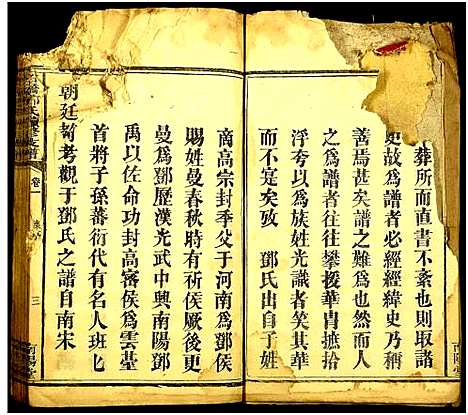 葬所而直書不紊也則取諸
史故為譜者必經經緯史乃稱
善焉甚矣譜之難為也然而人
之為譜者往往攀援華冑摭拾
浮夸以為族姓光識者笑其華
而不寔矣攷 鄧氏出自子姓
商高宗封季父于河南為鄧侯
賜姓曼春秋時有祈侯厥後更
曼為鄧歷漢光武中興南陽鄧
禹以佐命功封高密侯為雲臺
首將子孫蕃衍代有名人班匕
朝廷暫考觀于鄧氏之譜自南宋
氏續修支譜
卷一
三
南陽堂